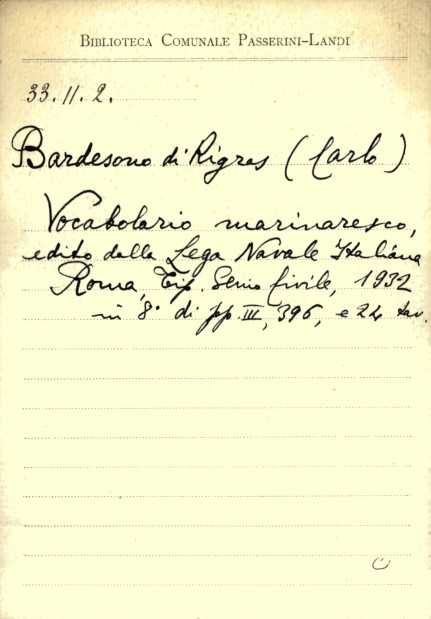 BIBLIOTECA COMUNALE PASSERINI-LANDI
33.II.2.
Bardesono di Rigras (Carlo)
Vocabolario marinaresco,
edito dalla Lega Navale Italiana
Roma, Tip. Genio Civile, 1932
in 8° di pp. III, 396, e 24 tav.